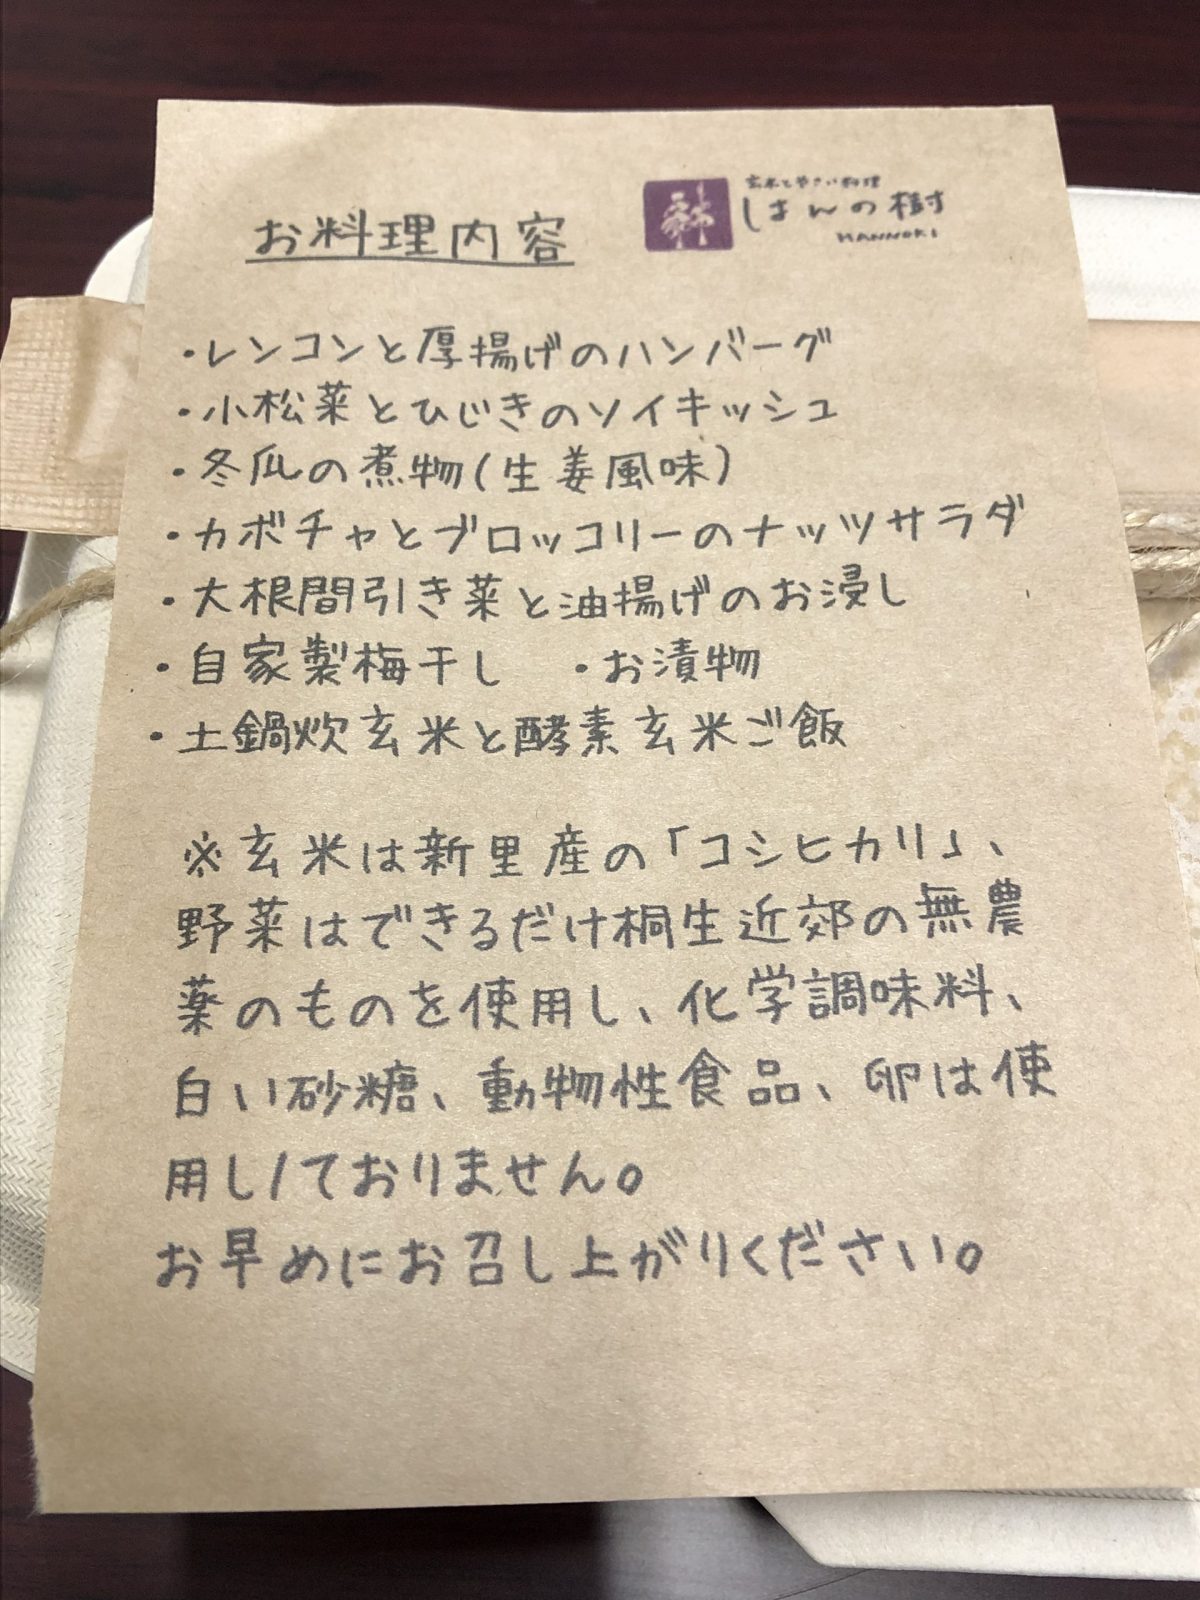 お料理内容
玄米とやさい料理
はんの樹
HANNOKI
・レンコンと厚揚げのハンバーグ
・小松菜とひじきのソイキッシュ
・冬瓜の煮物(生姜風味)
・カボチャとブロッコリーのナッツサラダ
・大根間引き菜と油揚げのお浸し
・自家製梅干し ・お漬物
・土鍋炊玄米と酵素玄米ご飯
※玄米は新里産の「コシヒカリ」、
野菜はできるだけ桐生近郊の無農
薬のものを使用し、化学調味料、
白い砂糖、動物性食品、卵は使
用しておりません。
お早めにお召し上がりください。